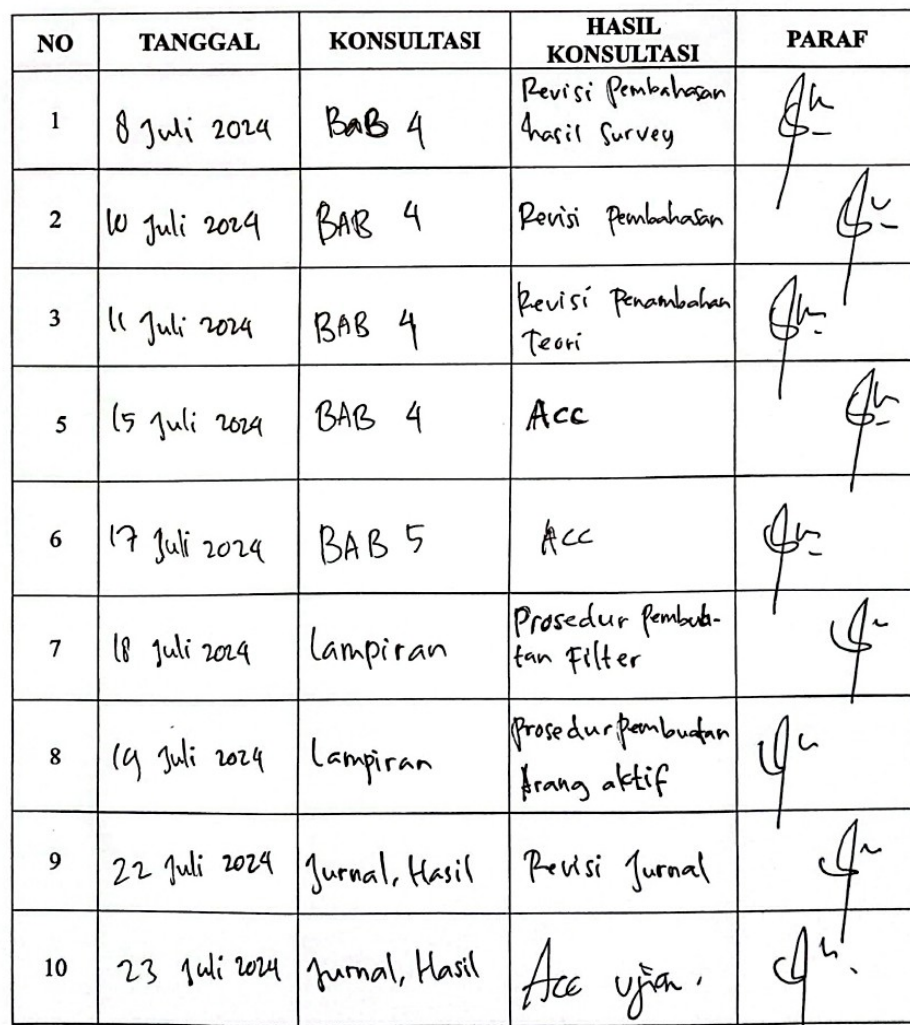 NO TANGGAL KONSULTASI HASIL KONSULTASI PARAF
1 8 Juli 2024 BaB 4 Revisi Pembahasan
hasil Survey
2 10 Juli 2024 BAB 4 Revisi Pembahasan
3 11 Juli 2024 BAB 4 Revisi Penambahan
Teori
5 15 Juli 2024 BAB 4 Acc
6 17 Juli 2024 BAB 5 Acc
7 18 Juli 2024 Lampiran Prosedur Pembua-
tan Filter
8 19 Juli 2024 Lampiran Prosedur Pembuatan
Arang aktif
9 22 Juli 2024 Jurnal, Hasil Revisi Jurnal
10 23 Juli 2024 Jurnal, Hasil Acc ujian.